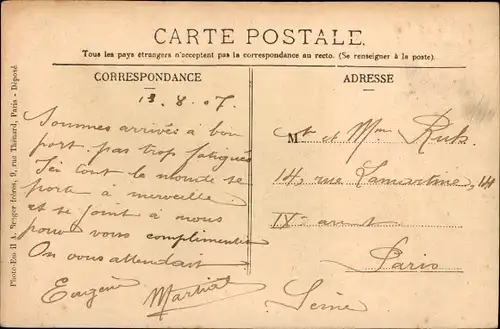 CARTE POSTALE.
Tous les pays étrangers n'acceptent pas la correspondance au recto. (Se renseigner à la poste).
CORRESPONDANCE
13.8.07.
Sommes arrivés à bon
port, pas trop fatigués
Ici tout le monde se
porte à merveille
et se joint à nous
pour vous complimenter
On vous attendait
Eugène Martial
ADRESSE
Mr et Mme
14, rue Lamartine, 14
IX
Paris
Seine
Neyer Frères, 9, rue Thénard, Paris - Déposé